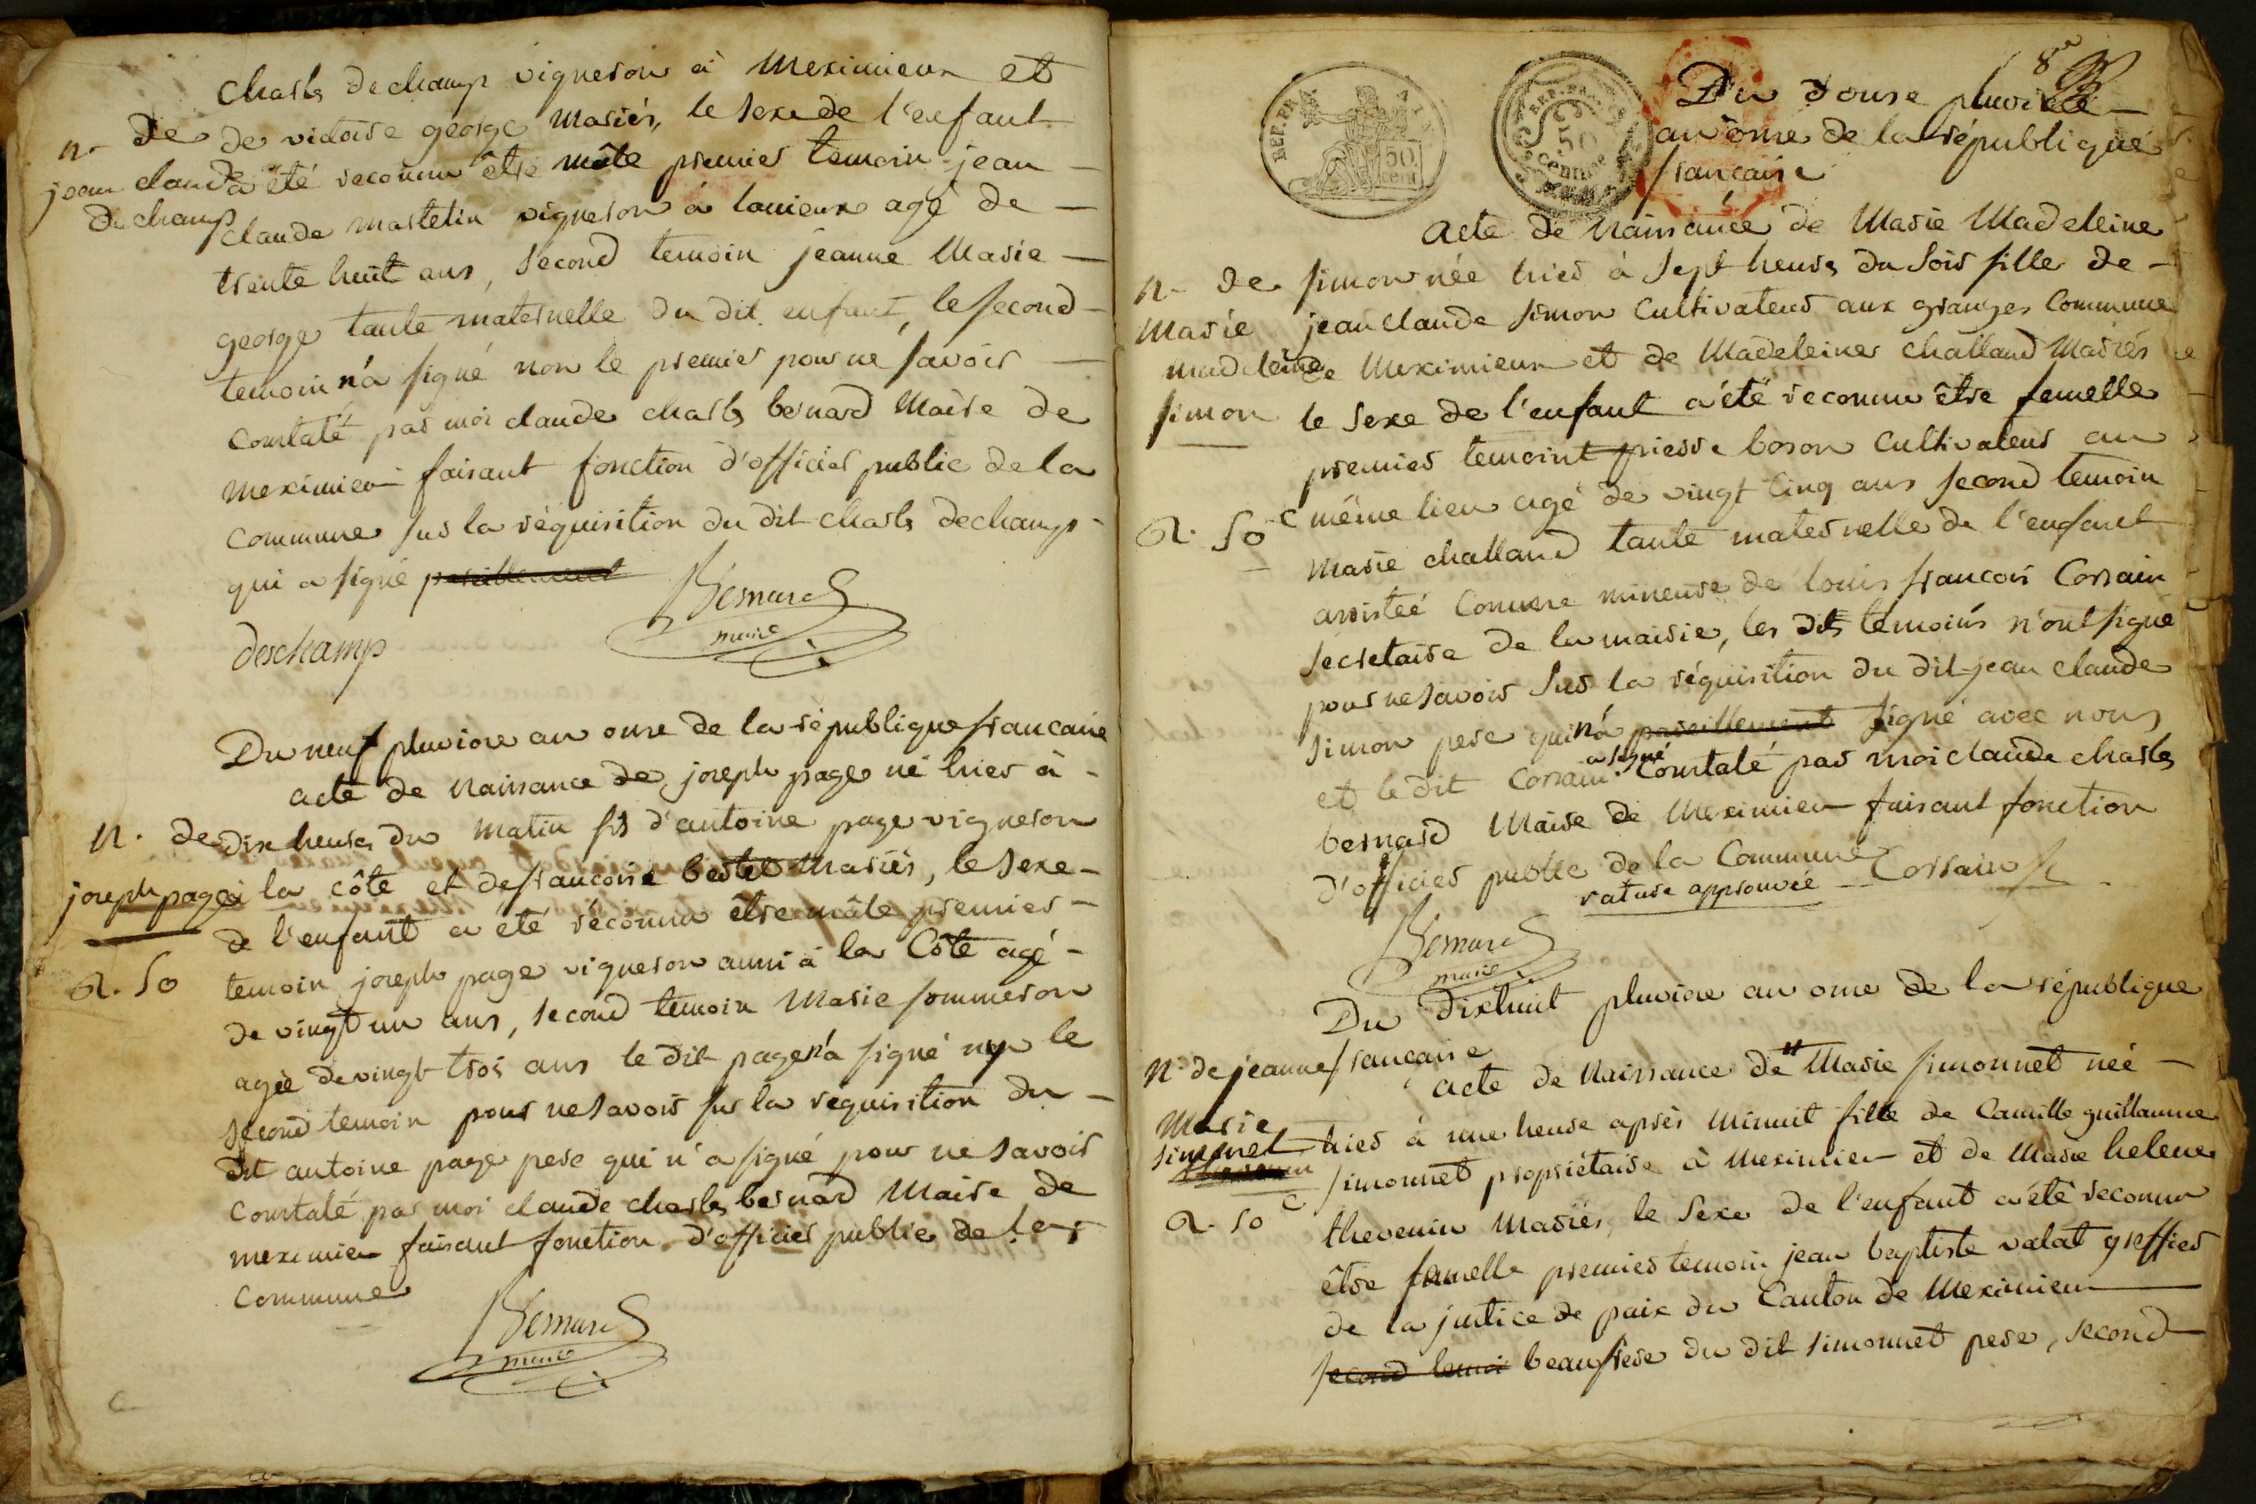 Charles dechamp vigneron à Meximieux et
n. de
jean claude
dechamp
de victoire george Mariés, le Sexe de l'enfant
a été reconnu être mâle premier temoin jean
claude martelin vigneron à louieux agé de
trente huit ans, second temoin jeanne Marie
george tante maternelle du dit enfant, le second
temoin n'a signé non le premier pour ne savoir
constaté par moi claude charles bernard Maire de
meximieu faisant fonction d'officier public de la
commune sur la réquisition du dit charles dechamp
qui a signé pareillement
Bernard
maire
deschamp
Du neuf pluviose an onze de la république francaise
acte de Naissance de joseph page né hier à
n. de
joseph page
a. 50
dix heures du matin fils d'antoine page vigneron
à la côte et de francoise bertet Mariés, le Sexe
de l'enfant a été réconnu être mâle premier
temoin joseph page vigneron aussi à la Côte agé
de vingt un ans, second temoin Marie sommeron
agée de vingt trois ans le dit page n'a signé ny le
second temoin pour ne savoir sur la requisition du
dit antoine page pere qui n'a signé pour ne savoir
constaté par moi claude charles bernard Maire de
meximieu faisant fonction d'officier public de la
commune
Bernard
maire
8e
REP. FRA.
50
cent
REP. FRA.
50
centimes
Du douze pluviose
an onze de la république
francaise
acte de Naissance de Marie Madeleine
n. de
Marie
madeleine
simon
a. 50 c
simon née hier à sept heures du soir fille de
jean claude simon Cultivateur aux granges Commune
de Meximieux et de Madeleine challand Mariés
le Sexe de l'enfant a été reconnu être femelle
premier temoint pierre boson Cultivateur au
même lieu agé de vingt Cinq ans second temoin
Marie challand tante maternelle de l'enfant
assisteé Comme mineure de louis francois Corsain
secretaire de la mairie, les dits temoins n'ont signé
pour ne savoir Sur la réquisition du dit jean claude
simon pere qui n'a pareillement signé avec nous
et le dit Corsain a signé Constaté par moi claude charles
bernard Maire de Meximieu faisant fonction
d'officier public de la Commune
rature approuvée Corsain
Bernard
maire
Du dixhuit pluviose an onze de la république
francaise
n. de jeanne
Marie
simonet
a. 50 c
acte de Naissance de Marie simonnet née
hier à une heure après Minuit fille de Camille guillaume
simonnet propriétaire à Meximieu et de Marie helene
thevenin Mariés, le Sexe de l'enfant a été reconnu
être femelle premier temoin jean baptiste valat greffier
de la justice de paix du Canton de Meximieu
second temoi beaufrere du dit simonnet pere, second